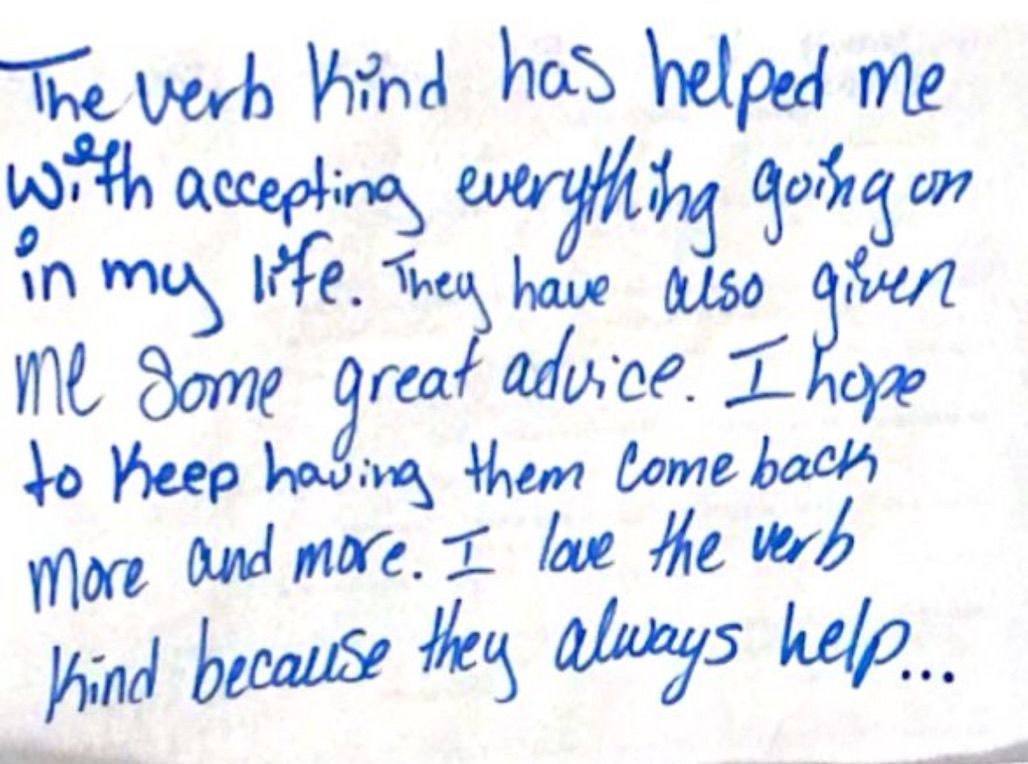 The verb Kind has helped me
with accepting everything going on
in my life. They have also given
me some great advice. I hope
to keep having them come back
more and more. I love the verb
Kind because they always help...